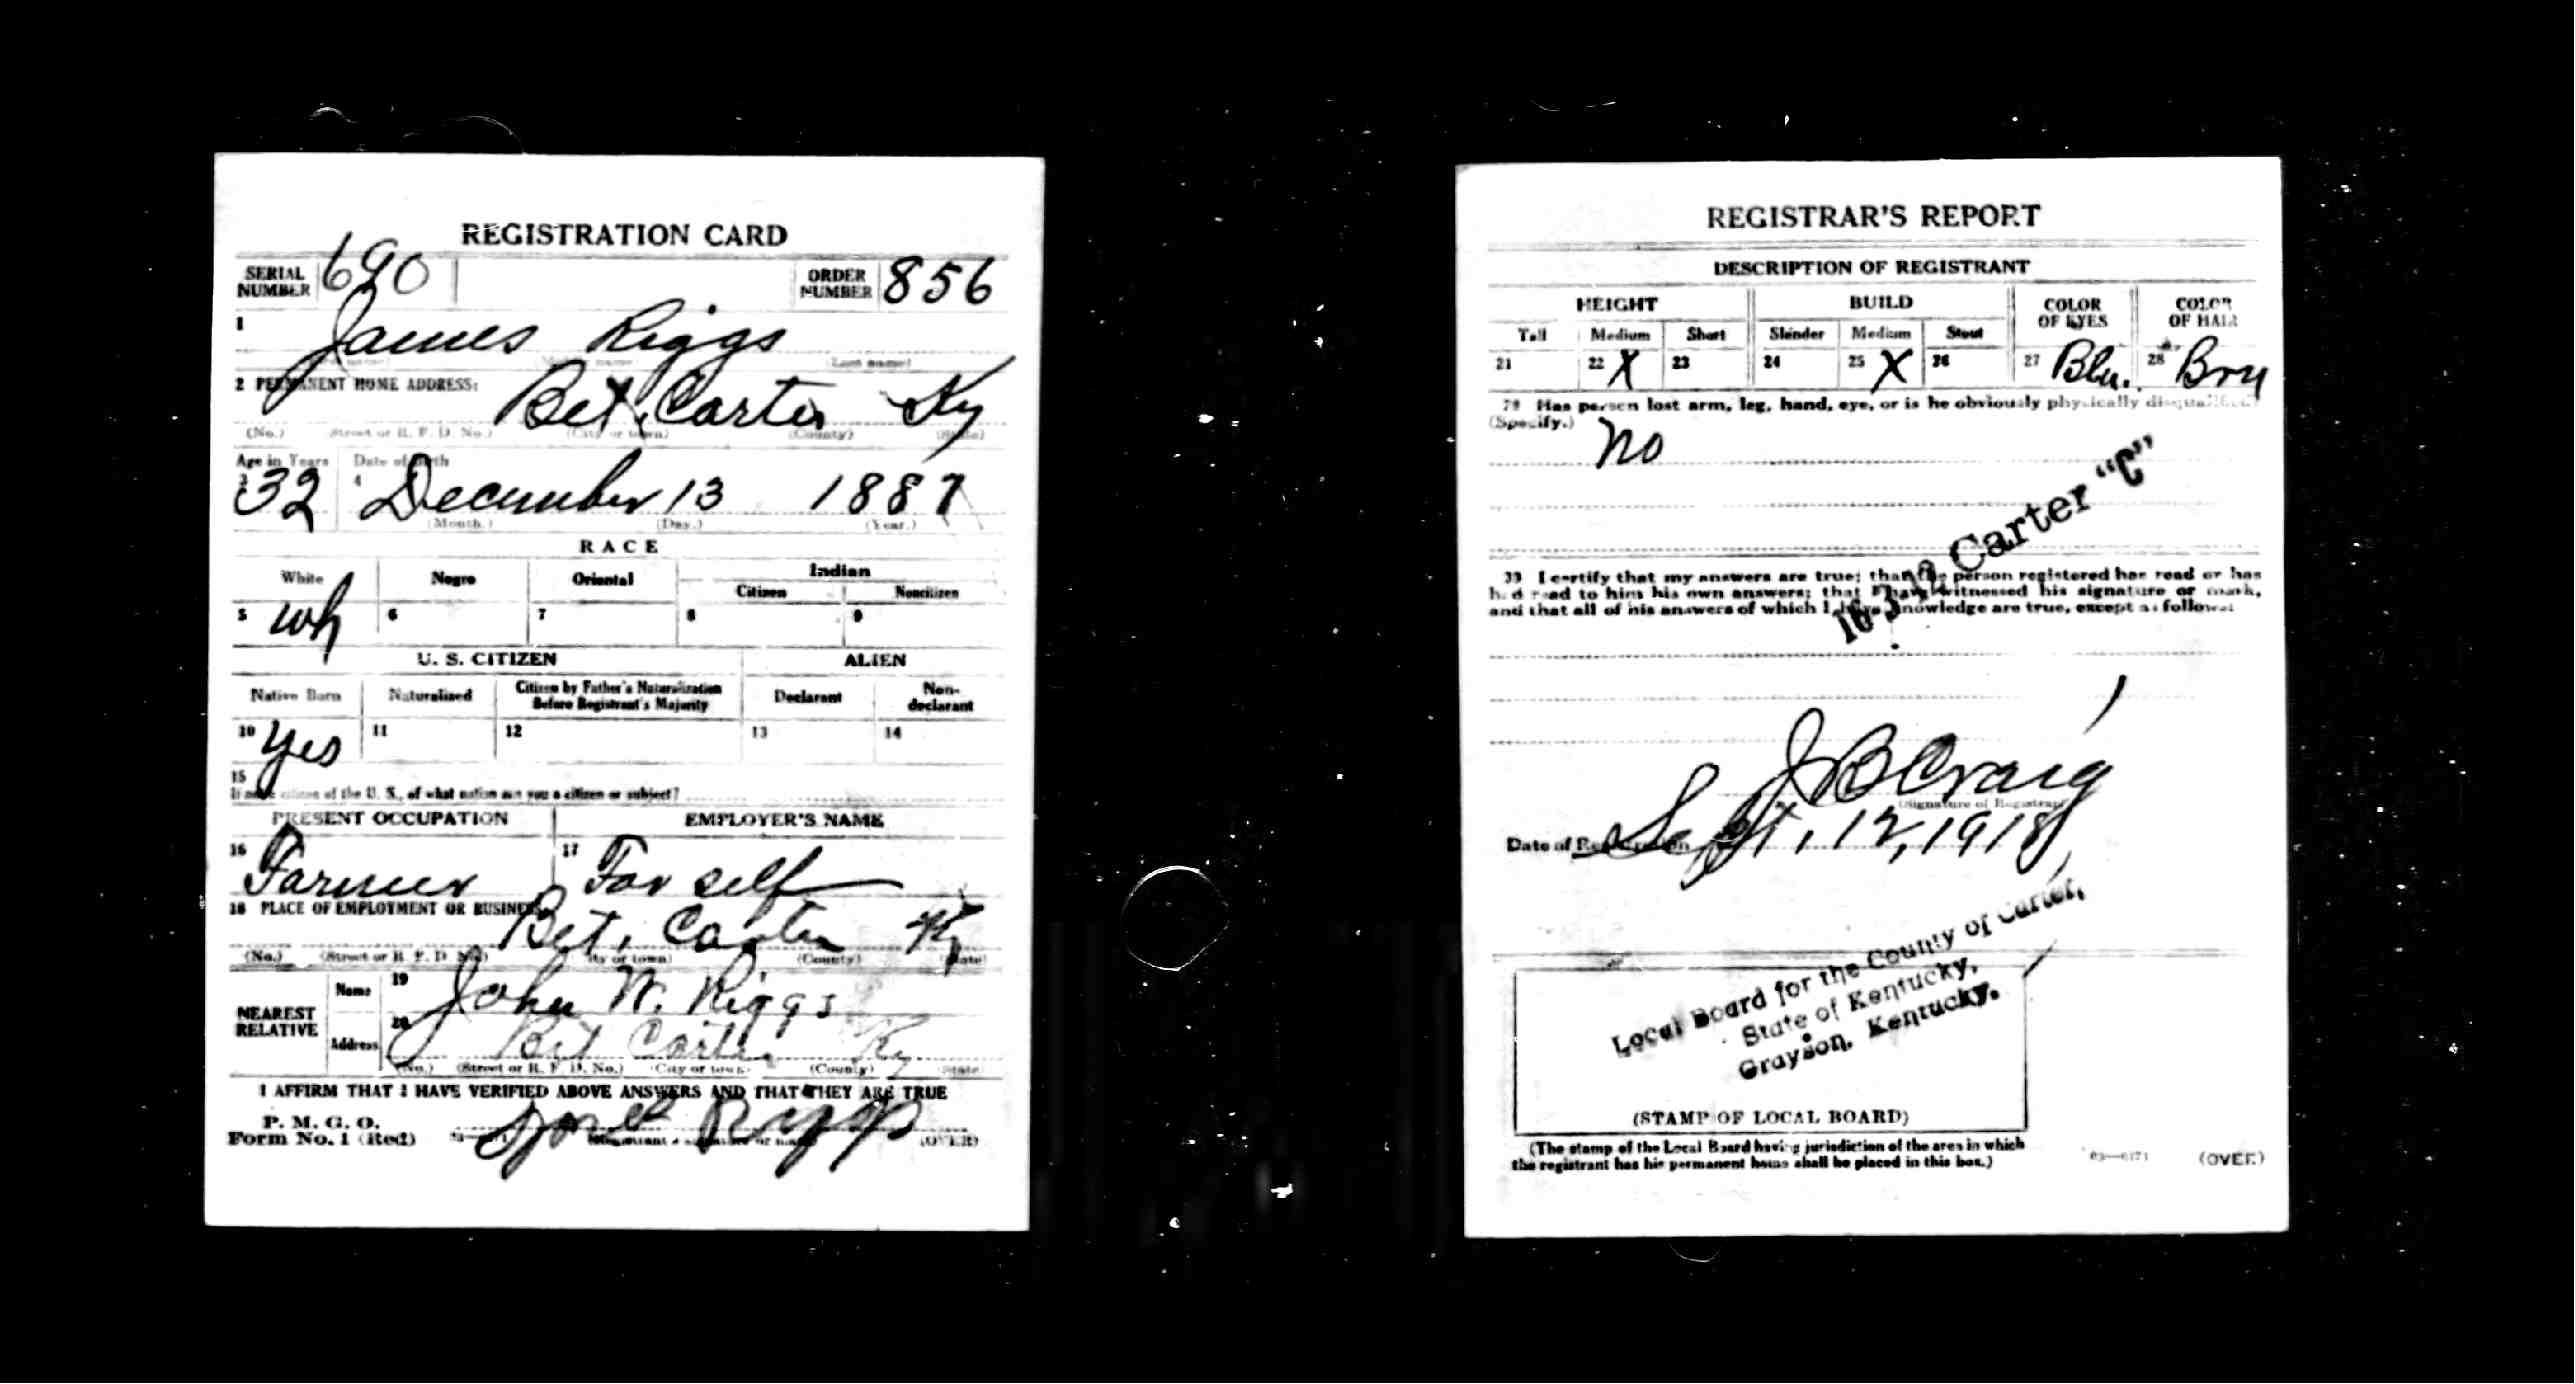 REGISTRATION CARD
SERIAL NUMBER 690 ORDER NUMBER 856
1 James Riggs
(Last name)
2 PERMANENT HOME ADDRESS:
Bet. Carter Ky
(No.) (Street or R. F. D. No.) (City or town) (County) (State)
Age in Years Date of Birth
3 32 4 December 13 1887
(Month.) (Day.) (Year.)
RACE
White Negro Oriental Indian
Citizen Noncitizen
5 Wh 6 7 8 9
U. S. CITIZEN ALIEN
Native Born Naturalized Citizen by Father's Naturalization Before Registrant's Majority Declarant Non-declarant
10 Yes 11 12 13 14
15
If not a citizen of the U. S., of what nation are you a citizen or subject?
PRESENT OCCUPATION EMPLOYER'S NAME
16 Farmer 17 For self
18 PLACE OF EMPLOYMENT OR BUSINESS:
Bet. Carter Ky
(No.) (Street or R. F. D. No.) (City or town) (County) (State)
NEAREST RELATIVE
Name 19 John W. Riggs
Address 20 Bet Carter Ky
(No.) (Street or R. F. D. No.) (City or town) (County) (State)
I AFFIRM THAT I HAVE VERIFIED ABOVE ANSWERS AND THAT THEY ARE TRUE
P. M. G. O.
Form No. 1 (Red) Riggs (OVER)
REGISTRAR'S REPORT
DESCRIPTION OF REGISTRANT
HEIGHT BUILD COLOR OF EYES COLOR OF HAIR
Tall Medium Short Slender Medium Stout
21 22 X 23 24 25 X 26 27 Blu. 28 Bru
29 Has person lost arm, leg, hand, eye, or is he obviously physically disqualified?
(Specify.) No
16-3-12 Carter "C"
30 I certify that my answers are true; that the person registered has read or has
had read to him his own answers; that I have witnessed his signature or mark,
and that all of his answers of which I have knowledge are true, except as follows:
J B Craig
(Signature of Registrar)
Date of Registration Sept, 12, 1918
Local Board for the County of Carter,
State of Kentucky,
Grayson, Kentucky.
(STAMP OF LOCAL BOARD)
(The stamp of the Local Board having jurisdiction of the area in which
the registrant has his permanent home shall be placed in this box.)
03—6171 (OVER)